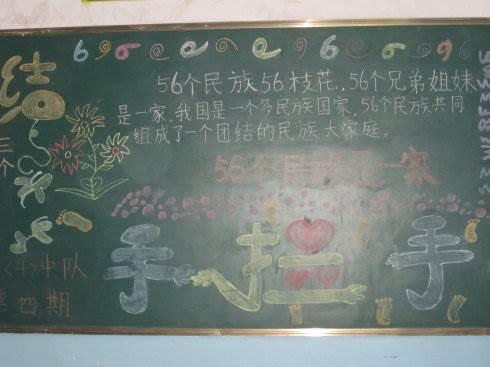 56个民族56枝花,56个兄弟姐妹
是一家。我国是一个多民族国家,56个民族共同
组成了一个团结的民族大家庭。
56个民族是一家
结
三个
手拉手
<4>中队
第四期